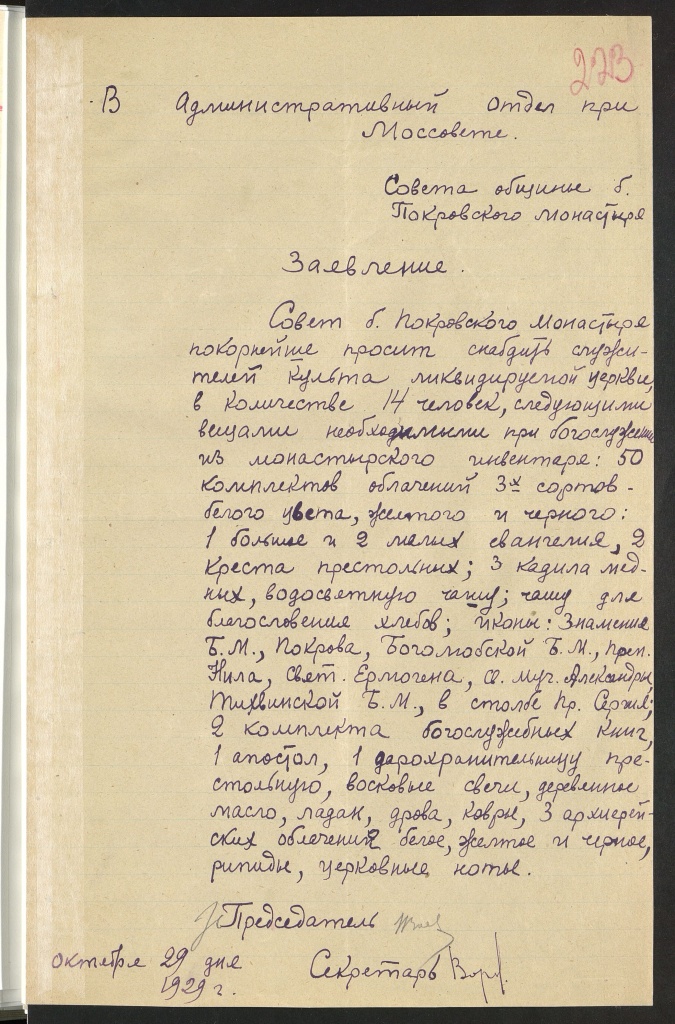 223
В Административный отдел при
Моссовете.
Совета общины б.
Покровского монастыря
Заявление.
Совет б. Покровского Монастыря
покорнейше просит снабдить служи-
телей культа ликвидируемой церкви,
в количестве 14 человек, следующими
вещами необходимыми при богослужении
из монастырского инвентаря: 50
комплектов облачений 3х сортов -
белого цвета, желтого и черного:
1 большое и 2 малых евангелия, 2
креста престольных; 3 кадила мед-
ных, водосвятную чашу; чашу для
благословения хлебов; иконы: Знамения
Б.М., Покрова, Боголюбской Б.М., преп.
Нила, Свят. Ермогена, св. муч. Александры,
Тихвинской Б.М., в столбе Пр. Сергия;
2 комплекта богослужебных книг,
1 апостол, 1 дарохранительницу пре-
стольную, восковые свечи, деревянное
масло, ладан, дрова, ковры, 3 архиерей-
ских облачения белое, желтое и черное,
рипиды, церковные ноты.
Председатель
октября 29 дня Секретарь
1929 г.